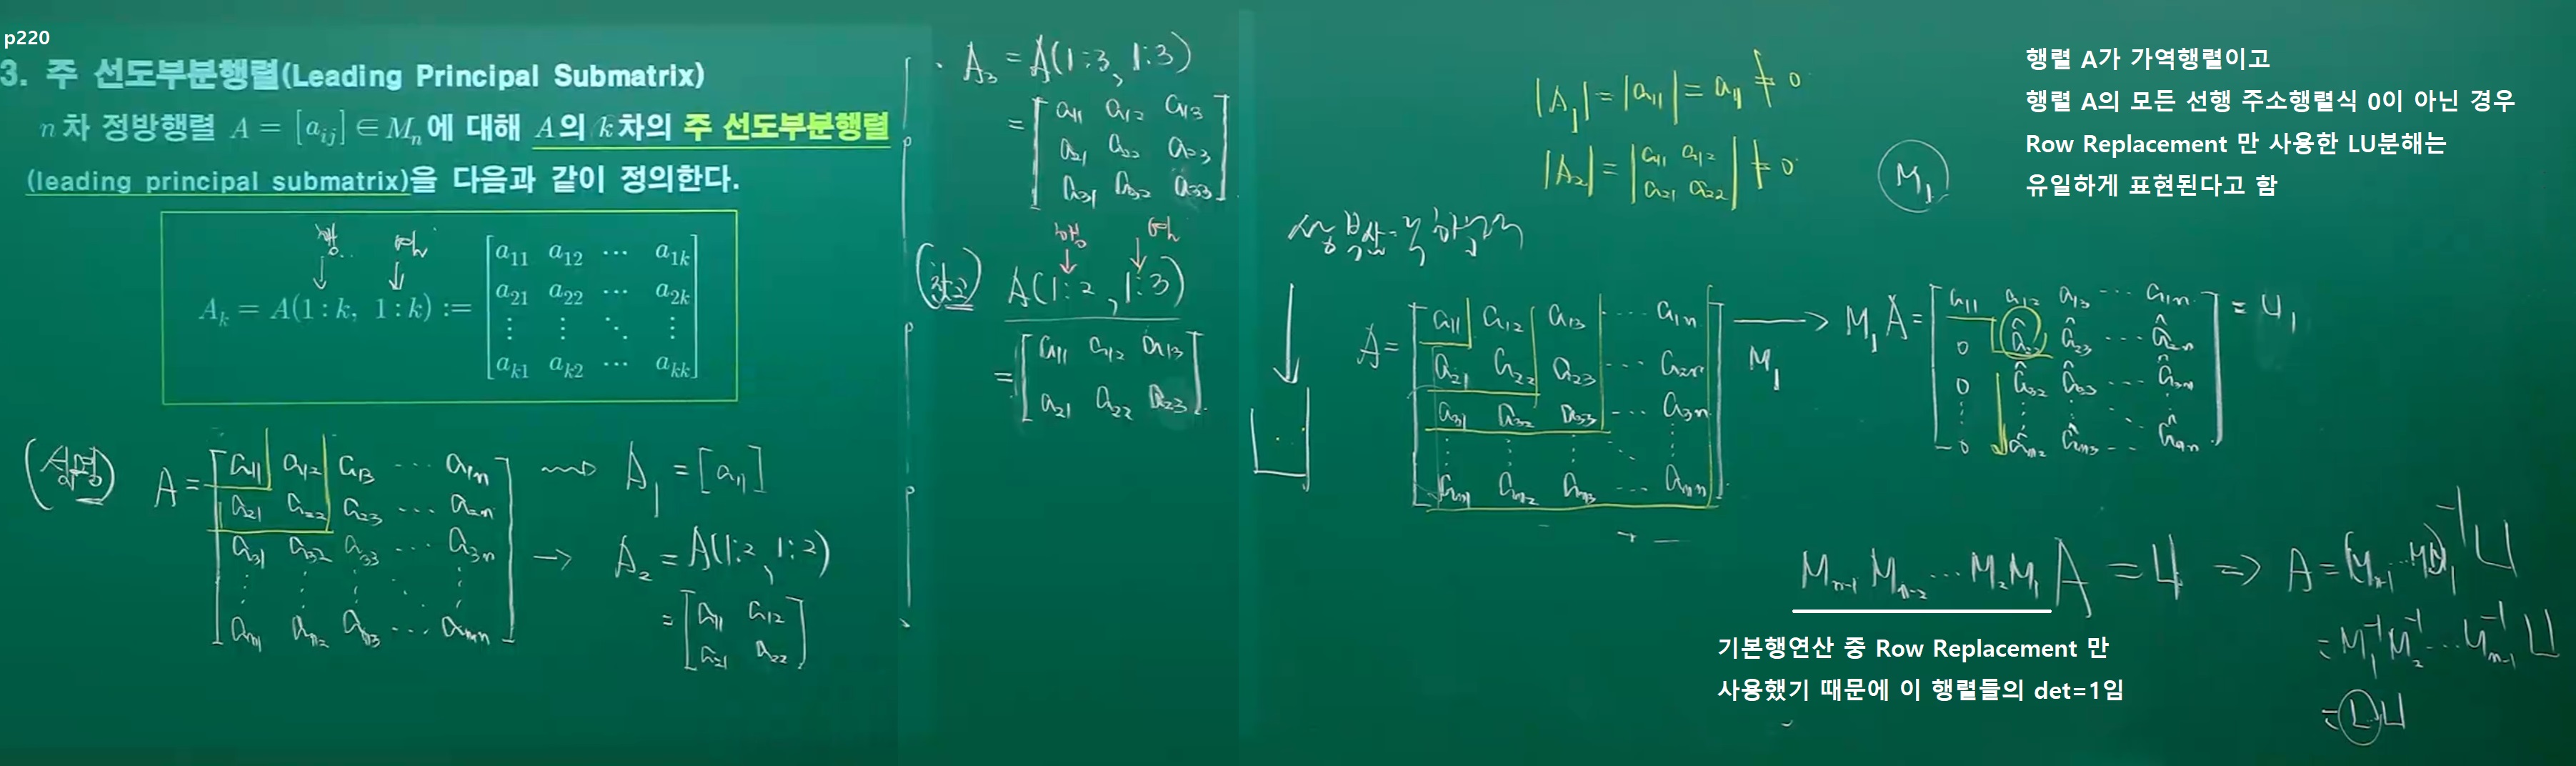 p220
3. 주 선도부분행렬(Leading Principal Submatrix)
n차 정방행렬 A = [a_{ij}] ∈ M_n에 대해 A의 k차의 주 선도부분행렬
(leading principal submatrix)을 다음과 같이 정의한다.
행 열
A_k = A(1:k, 1:k) := [a_{11} a_{12} ⋯ a_{1k}
a_{21} a_{22} ⋯ a_{2k}
⋮ ⋮ ⋱ ⋮
a_{k1} a_{k2} ⋯ a_{kk}]
(설명) A = [a_{11} a_{12} a_{13} ⋯ a_{1n}
a_{21} a_{22} a_{23} ⋯ a_{2n}
a_{31} a_{32} a_{33} ⋯ a_{3n}
⋮ ⋮ ⋮ ⋱ ⋮
a_{n1} a_{n2} a_{n3} ⋯ a_{nn}]
→ A_1 = [a_{11}]
→ A_2 = A(1:2, 1:2)
= [a_{11} a_{12}
a_{21} a_{22}]
· A_3 = A(1:3, 1:3)
= [a_{11} a_{12} a_{13}
a_{21} a_{22} a_{23}
a_{31} a_{32} a_{33}]
행 열
(참고) A(1:2, 1:3)
= [a_{11} a_{12} a_{13}
a_{21} a_{22} a_{23}]
|A_1| = |a_{11}| = a_{11} ≠ 0
|A_2| = |a_{11} a_{12}
a_{21} a_{22}| ≠ 0
M_1
행렬 A가 가역행렬이고
행렬 A의 모든 선행 주소행렬식 0이 아닌 경우
Row Replacement 만 사용한 LU분해는
유일하게 표현된다고 함
A = [a_{11} a_{12} a_{13} ⋯ a_{1n}
a_{21} a_{22} a_{23} ⋯ a_{2n}
a_{31} a_{32} a_{33} ⋯ a_{3n}
⋮ ⋮ ⋮ ⋱ ⋮
a_{n1} a_{n2} a_{n3} ⋯ a_{nn}]
→ M_1
M_1 A = [a_{11} a_{12} a_{13} ⋯ a_{1n}
0 â_{22} â_{23} ⋯ â_{2n}
0 â_{32} â_{33} ⋯ â_{3n}
⋮ ⋮ ⋮ ⋱ ⋮
0 â_{n2} â_{n3} ⋯ â_{nn}] = U_1
M_{n-1} M_{n-2} ⋯ M_2 M_1 A = U ⇒ A = (M_{n-1} ⋯ M_1)^{-1} U
= M_1^{-1} M_2^{-1} ⋯ M_{n-1}^{-1} U
= L U
기본행연산 중 Row Replacement 만
사용했기 때문에 이 행렬들의 det=1임